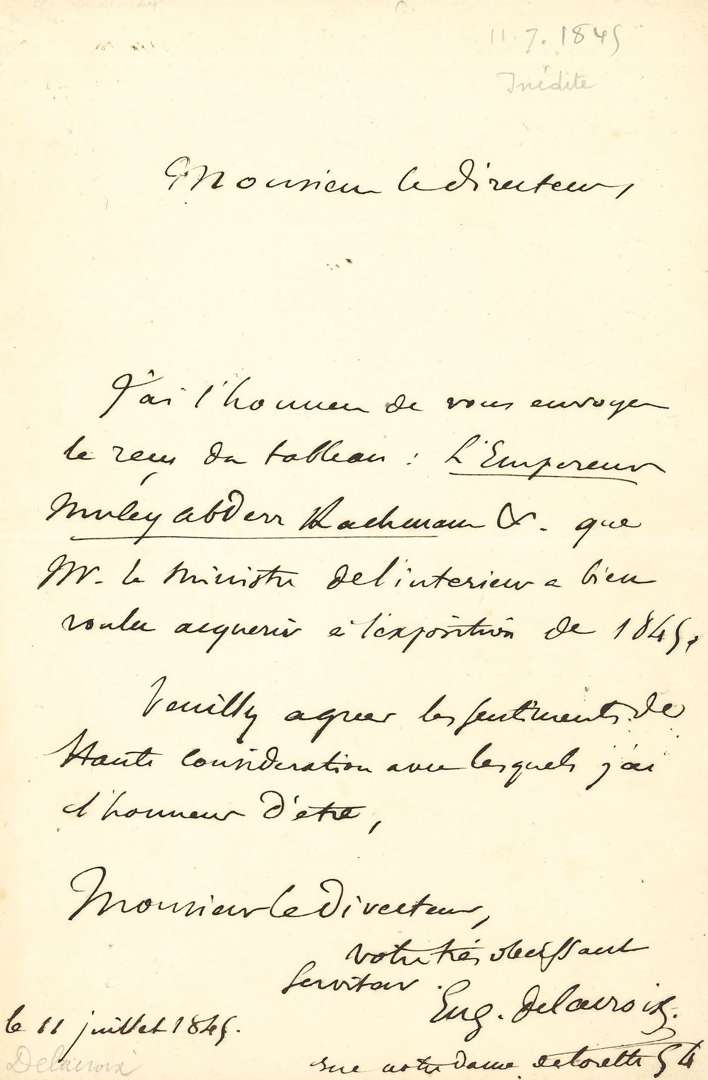 11.7.1845
Inédite
Monsieur le directeur,
J'ai l'honneur de vous envoyer
le reçu du tableau : L'Empereur
Muley abderr Rachmann &. que
Mr. le Ministre de l'interieur a bien
voulu acquerir à l'exposition de 1845.
Veuillez agreer les sentiments de
Haute consideration avec lesquels j'ai
l'honneur d'être,
Monsieur le Directeur,
votre très obeissant
serviteur.
Eug. Delacroix.
le 11 juillet 1845.
rue notre dame de lorette 54
Delacroix